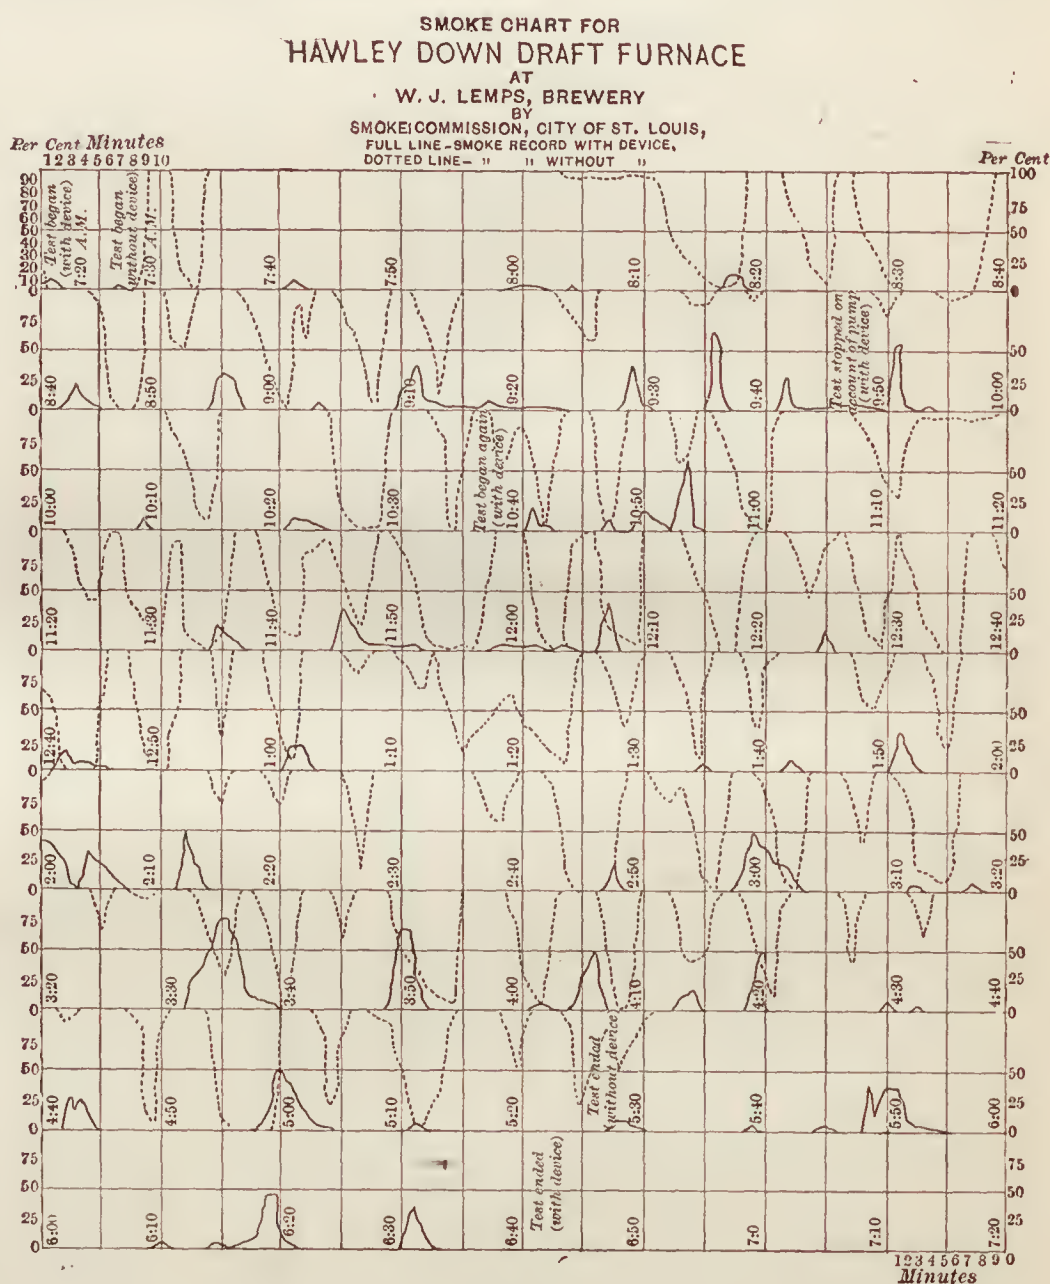 SMOKE CHART FOR
HAWLEY DOWN DRAFT FURNACE
AT
W. J. LEMPS, BREWERY
BY
SMOKE COMMISSION, CITY OF ST. LOUIS,
FULL LINE-SMOKE RECORD WITH DEVICE,
DOTTED LINE- " " WITHOUT "
Per Cent Minutes
1 2 3 4 5 6 7 8 9 10
Per Cent
90 80 70 60 50 40 30 20 10 0
Test began
(with device)
7:20 A.M.
Test began
without device)
7:30 A.M.
7:40 7:50 8:00 8:10 8:20 8:30 8:40
100 75 50 25 0
75 50 25 0
8:40 8:50 9:00 9:10 9:20 9:30 9:40
Test stopped on
account of pump
(with device)
9:50 10:00
50 25 0
75 50 25 0
10:00 10:10 10:20 10:30
Test began again
(with device)
10:40 10:50 11:00 11:10 11:20
75 50 25 0
75 50 25 0
11:20 11:30 11:40 11:50 12:00 12:10 12:20 12:30 12:40
75 50 25 0
75 50 25 0
12:40 12:50 1:00 1:10 1:20 1:30 1:40 1:50 2:00
75 50 25 0
75 50 25 0
2:00 2:10 2:20 2:30 2:40 2:50 3:00 3:10 3:20
75 50 25 0
75 50 25 0
3:20 3:30 3:40 3:50 4:00 4:10 4:20 4:30 4:40
75 50 25 0
75 50 25 0
4:40 4:50 5:00 5:10 5:20
Test ended
(without device)
5:30 5:40 5:50 6:00
50 25 0
75 50 25 0
6:00 6:10 6:20 6:30 6:40
Test ended
(with device)
6:50 7:0 7:10 7:20
75 50 25
1 2 3 4 5 6 7 8 9 0
Minutes